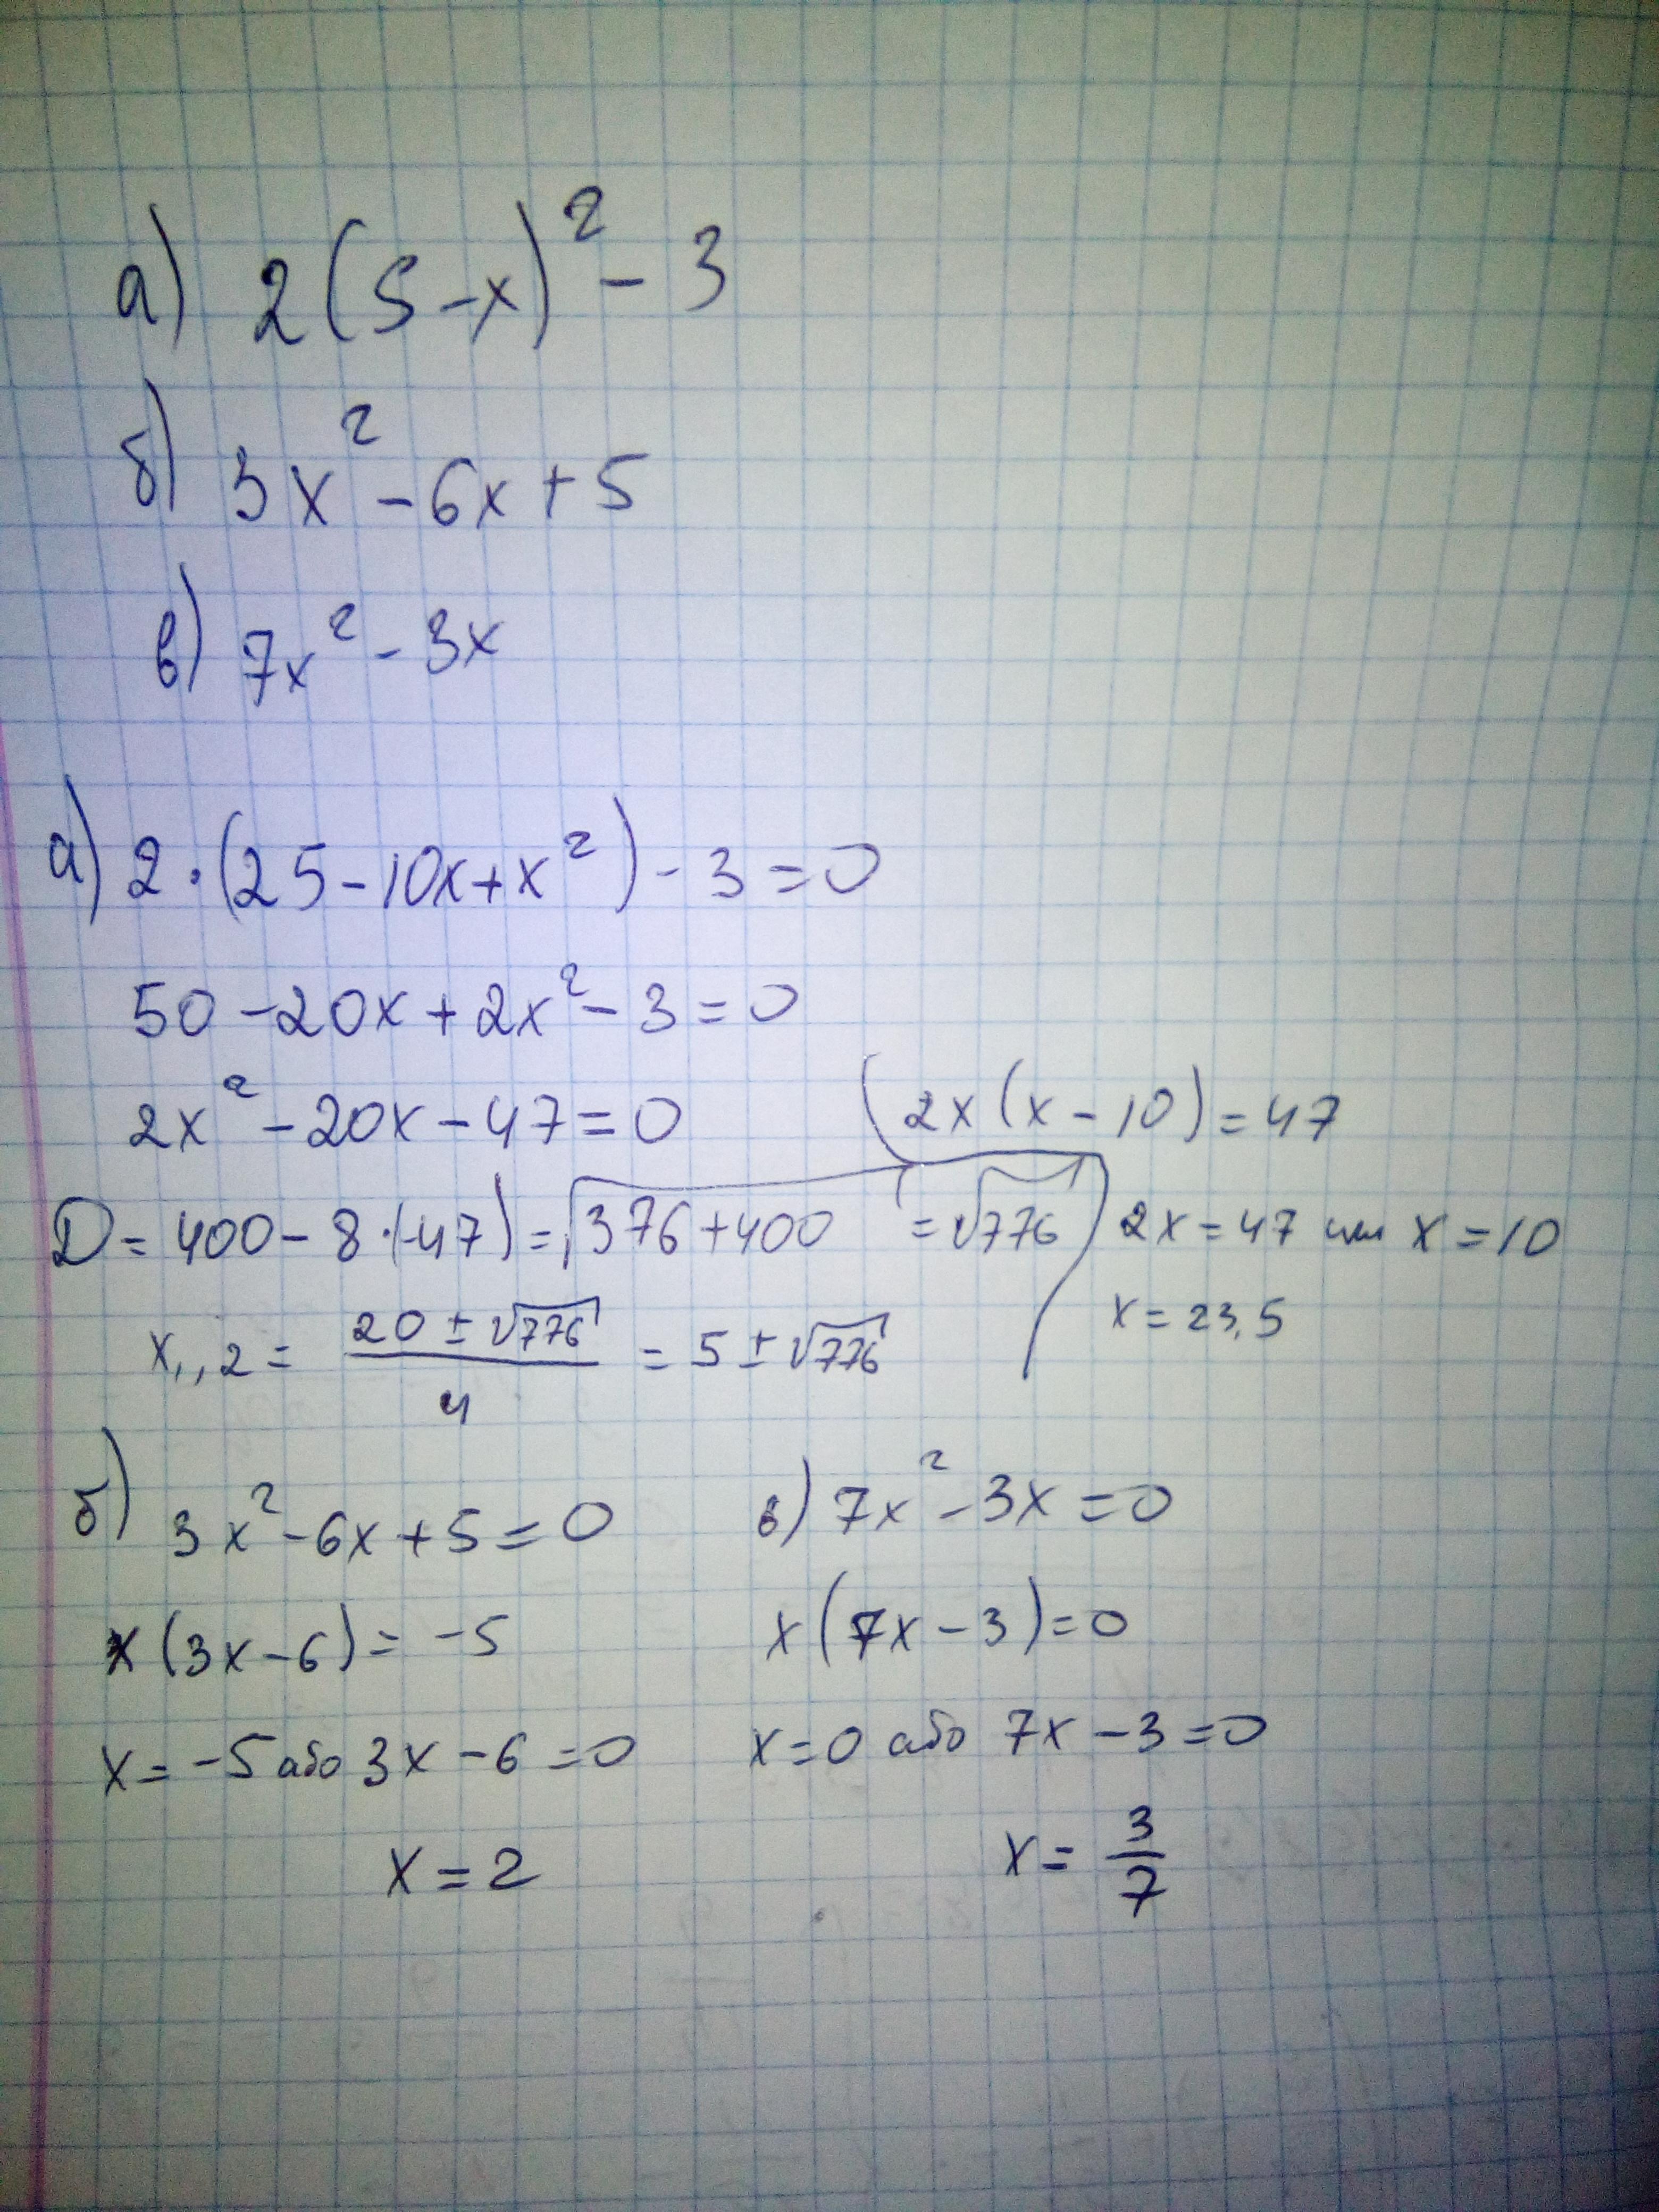 а) 2(5-x)² - 3
б) 3x² - 6x + 5
в) 7x² - 3x
а) 2·(25-10x+x²) - 3 = 0
50 - 20x + 2x² - 3 = 0
2x² - 20x - 47 = 0
2x(x - 10) = 47
D = 400 - 8·(-47) = √376+400 = √776
2x = 47 или x = 10
x = 23,5
x₁,₂ = (20 ± √776)/4 = 5 ± √776
б) 3x² - 6x + 5 = 0
x(3x - 6) = -5
x = -5 або 3x - 6 = 0
x = 2
в) 7x² - 3x = 0
x(7x - 3) = 0
x = 0 або 7x - 3 = 0
x = 3/7